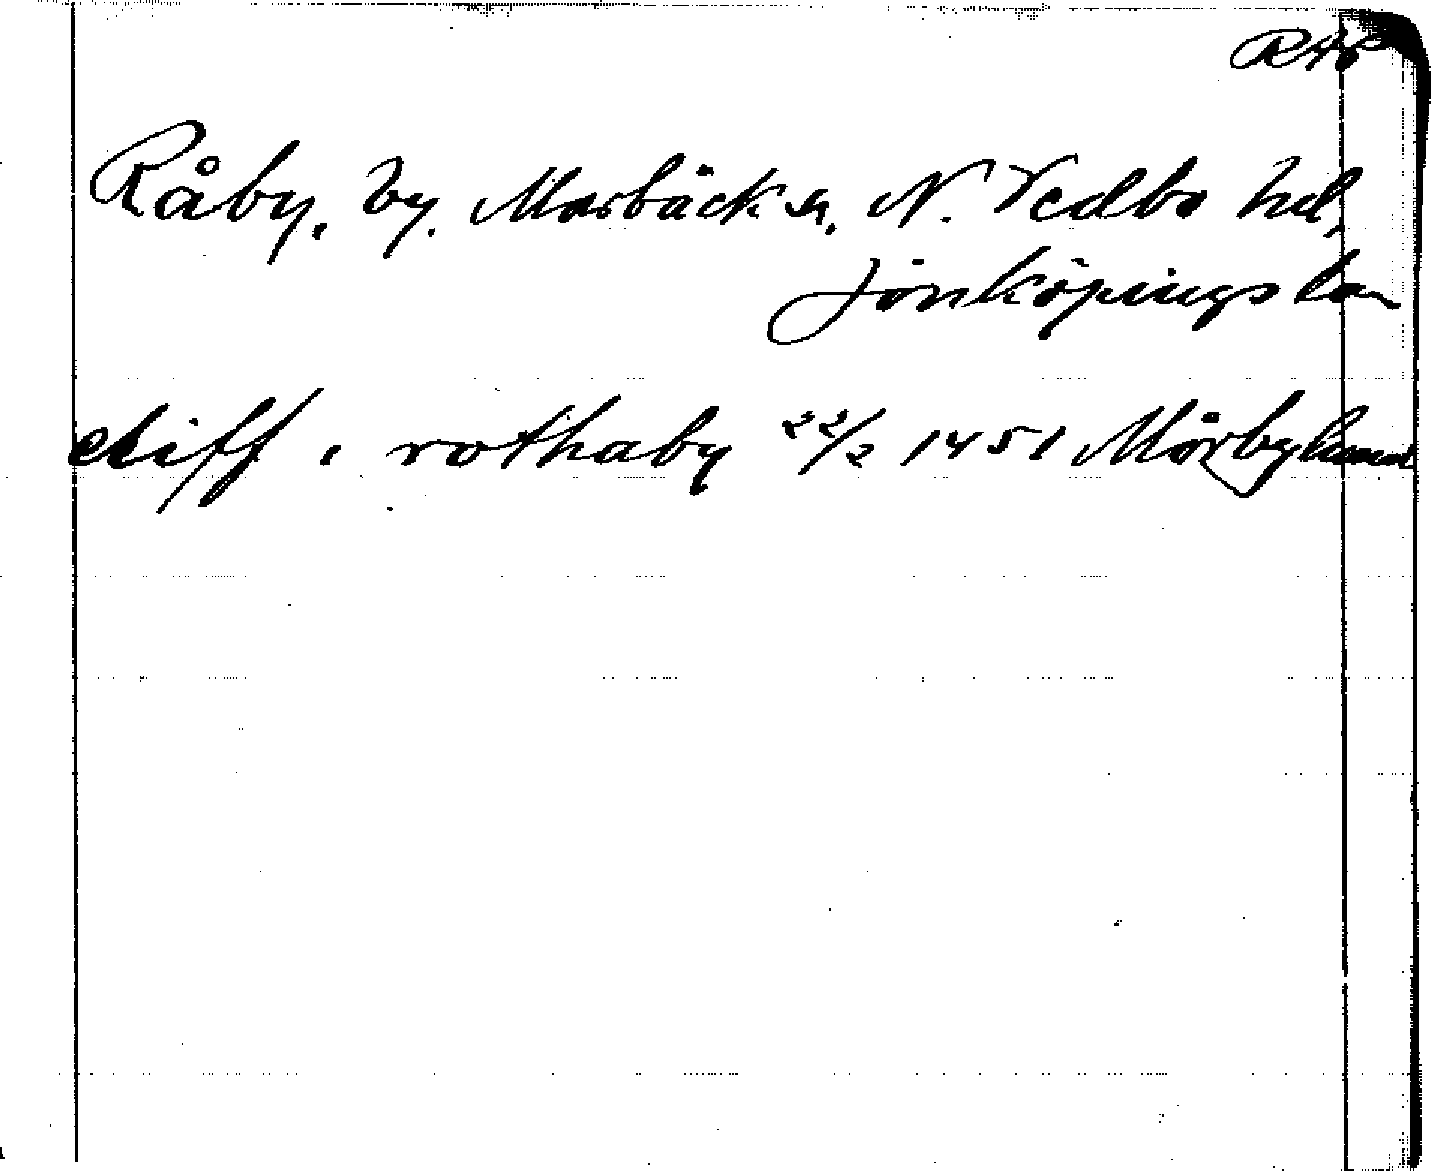 RAp
Råby, by, Marbäck sn, N. Vedbo hd,
Jönköpings län
eliff i rothaby 22/2 1451 Mörbylund